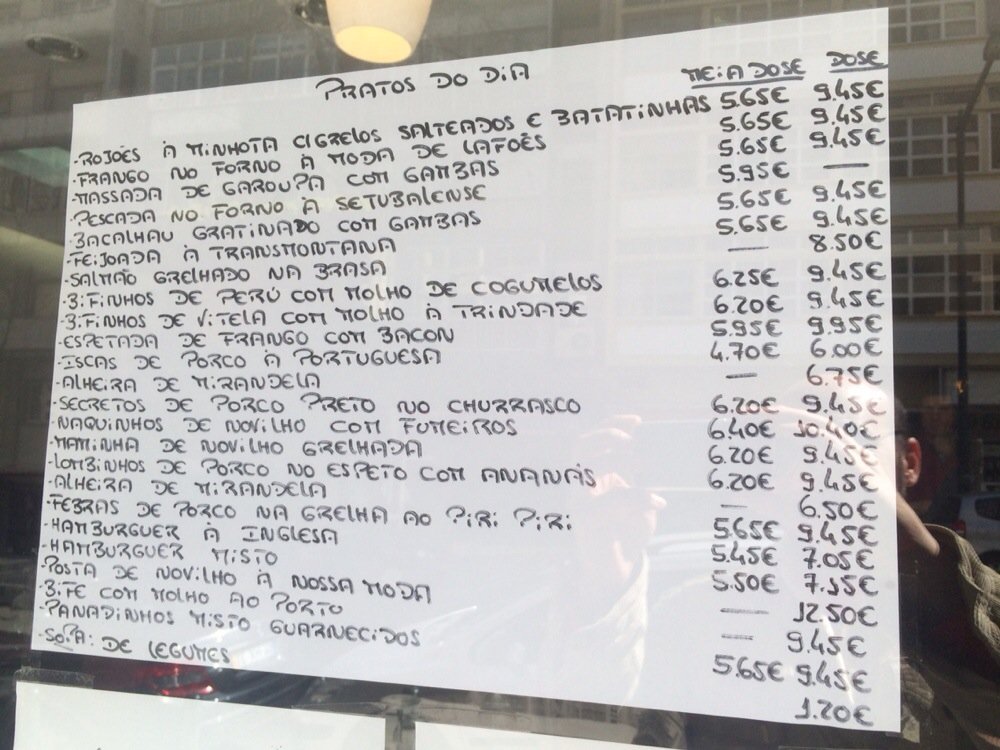 PRATOS DO DIA MEIA DOSE DOSE
-ROJÕES À MINHOTA C/GRELOS SALTEADOS E BATATINHAS 5.65€ 9.45€
-FRANGO NO FORNO À MODA DE LAFÕES 5.65€ 9.45€
-MASSADA DE GAROUPA COM GAMBAS 5.65€ 9.45€
-PESCADA NO FORNO À SETUBALENSE 5.95€ —
-BACALHAU GRATINADO COM GAMBAS 5.65€ 9.45€
-FEIJOADA À TRANSMONTANA 5.65€ 9.45€
-SALMÃO GRELHADO NA BRASA — 8.50€
-BIFINHOS DE PERÚ COM MOLHO DE COGUMELOS 6.25€ 9.45€
-BIFINHOS DE VITELA COM MOLHO À TRINDADE 6.20€ 9.45€
-ESPETADA DE FRANGO COM BACON 5.95€ 9.95€
-ISCAS DE PORCO À PORTUGUESA 4.70€ 6.00€
-ALHEIRA DE MIRANDELA — 6.75€
-SECRETOS DE PORCO PRETO NO CHURRASCO 6.20€ 9.45€
-NAQUINHOS DE NOVILHO COM FUMEIROS 6.40€ 10.40€
-MAMINHA DE NOVILHO GRELHADA 6.20€ 9.45€
-LOMBINHOS DE PORCO NO ESPETO COM ANANÁS 6.20€ 9.45€
-ALHEIRA DE MIRANDELA — 6.50€
-FEBRAS DE PORCO NA GRELHA AO PIRI PIRI 5.65€ 9.45€
-HAMBURGUER À INGLESA 5.45€ 7.05€
-HAMBURGUER MISTO 5.50€ 7.15€
-POSTA DE NOVILHO À NOSSA MODA — 12.50€
-BIFE COM MOLHO AO PORTO — 9.45€
-PANADINHOS MISTO GUARNECIDOS 5.65€ 9.45€
-SOPA: DE LEGUMES 1.20€